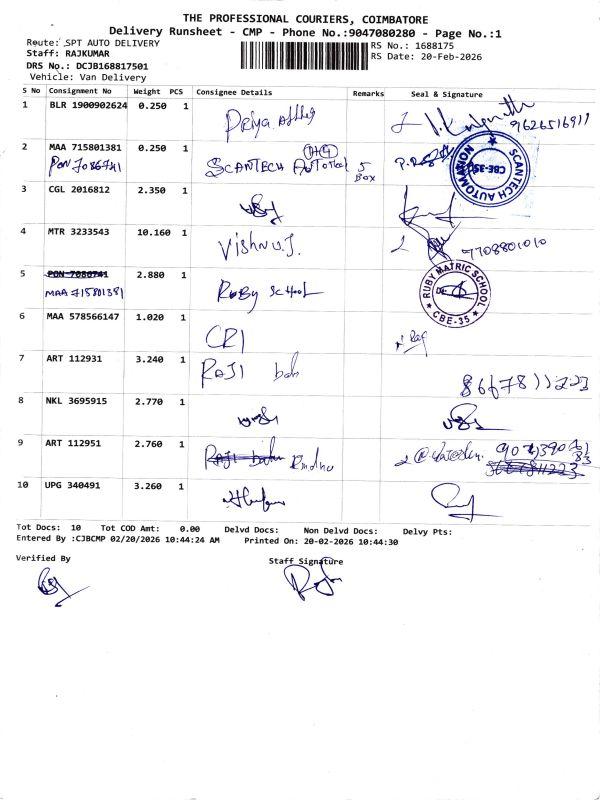 THE PROFESSIONAL COURIERS, COIMBATORE
Delivery Runsheet - CMP - Phone No.:9047080280 - Page No.:1
Route: SPT AUTO DELIVERY
Staff: RAJKUMAR
DRS No.: DCJB168817501
Vehicle: Van Delivery
RS No.: 1688175
RS Date: 20-Feb-2026
S No Consignment No Weight PCS Consignee Details Remarks Seal & Signature
1 BLR 1900902624 0.250 1 Priya 9626516911
2 MAA 715801381 0.250 1 SCANTECH 5 Box
PON 7086741
SCANTECH AUTOMATION CBE-35
3 CGL 2016812 2.350 1
4 MTR 3233543 10.160 1 Vishnu.J. 7708801010
5 PON 7086741 2.880 1 Ruby School
MAA 715801381
RUBY MATRIC SCHOOL CBE-35
6 MAA 578566147 1.020 1 CRI
7 ART 112931 3.240 1 RAJI 8667811223
8 NKL 3695915 2.770 1
9 ART 112951 2.760 1
10 UPG 340491 3.260 1
Tot Docs: 10 Tot COD Amt: 0.00 Delvd Docs: Non Delvd Docs: Delvy Pts:
Entered By :CJBCMP 02/20/2026 10:44:24 AM Printed On: 20-02-2026 10:44:30
Verified By Staff Signature